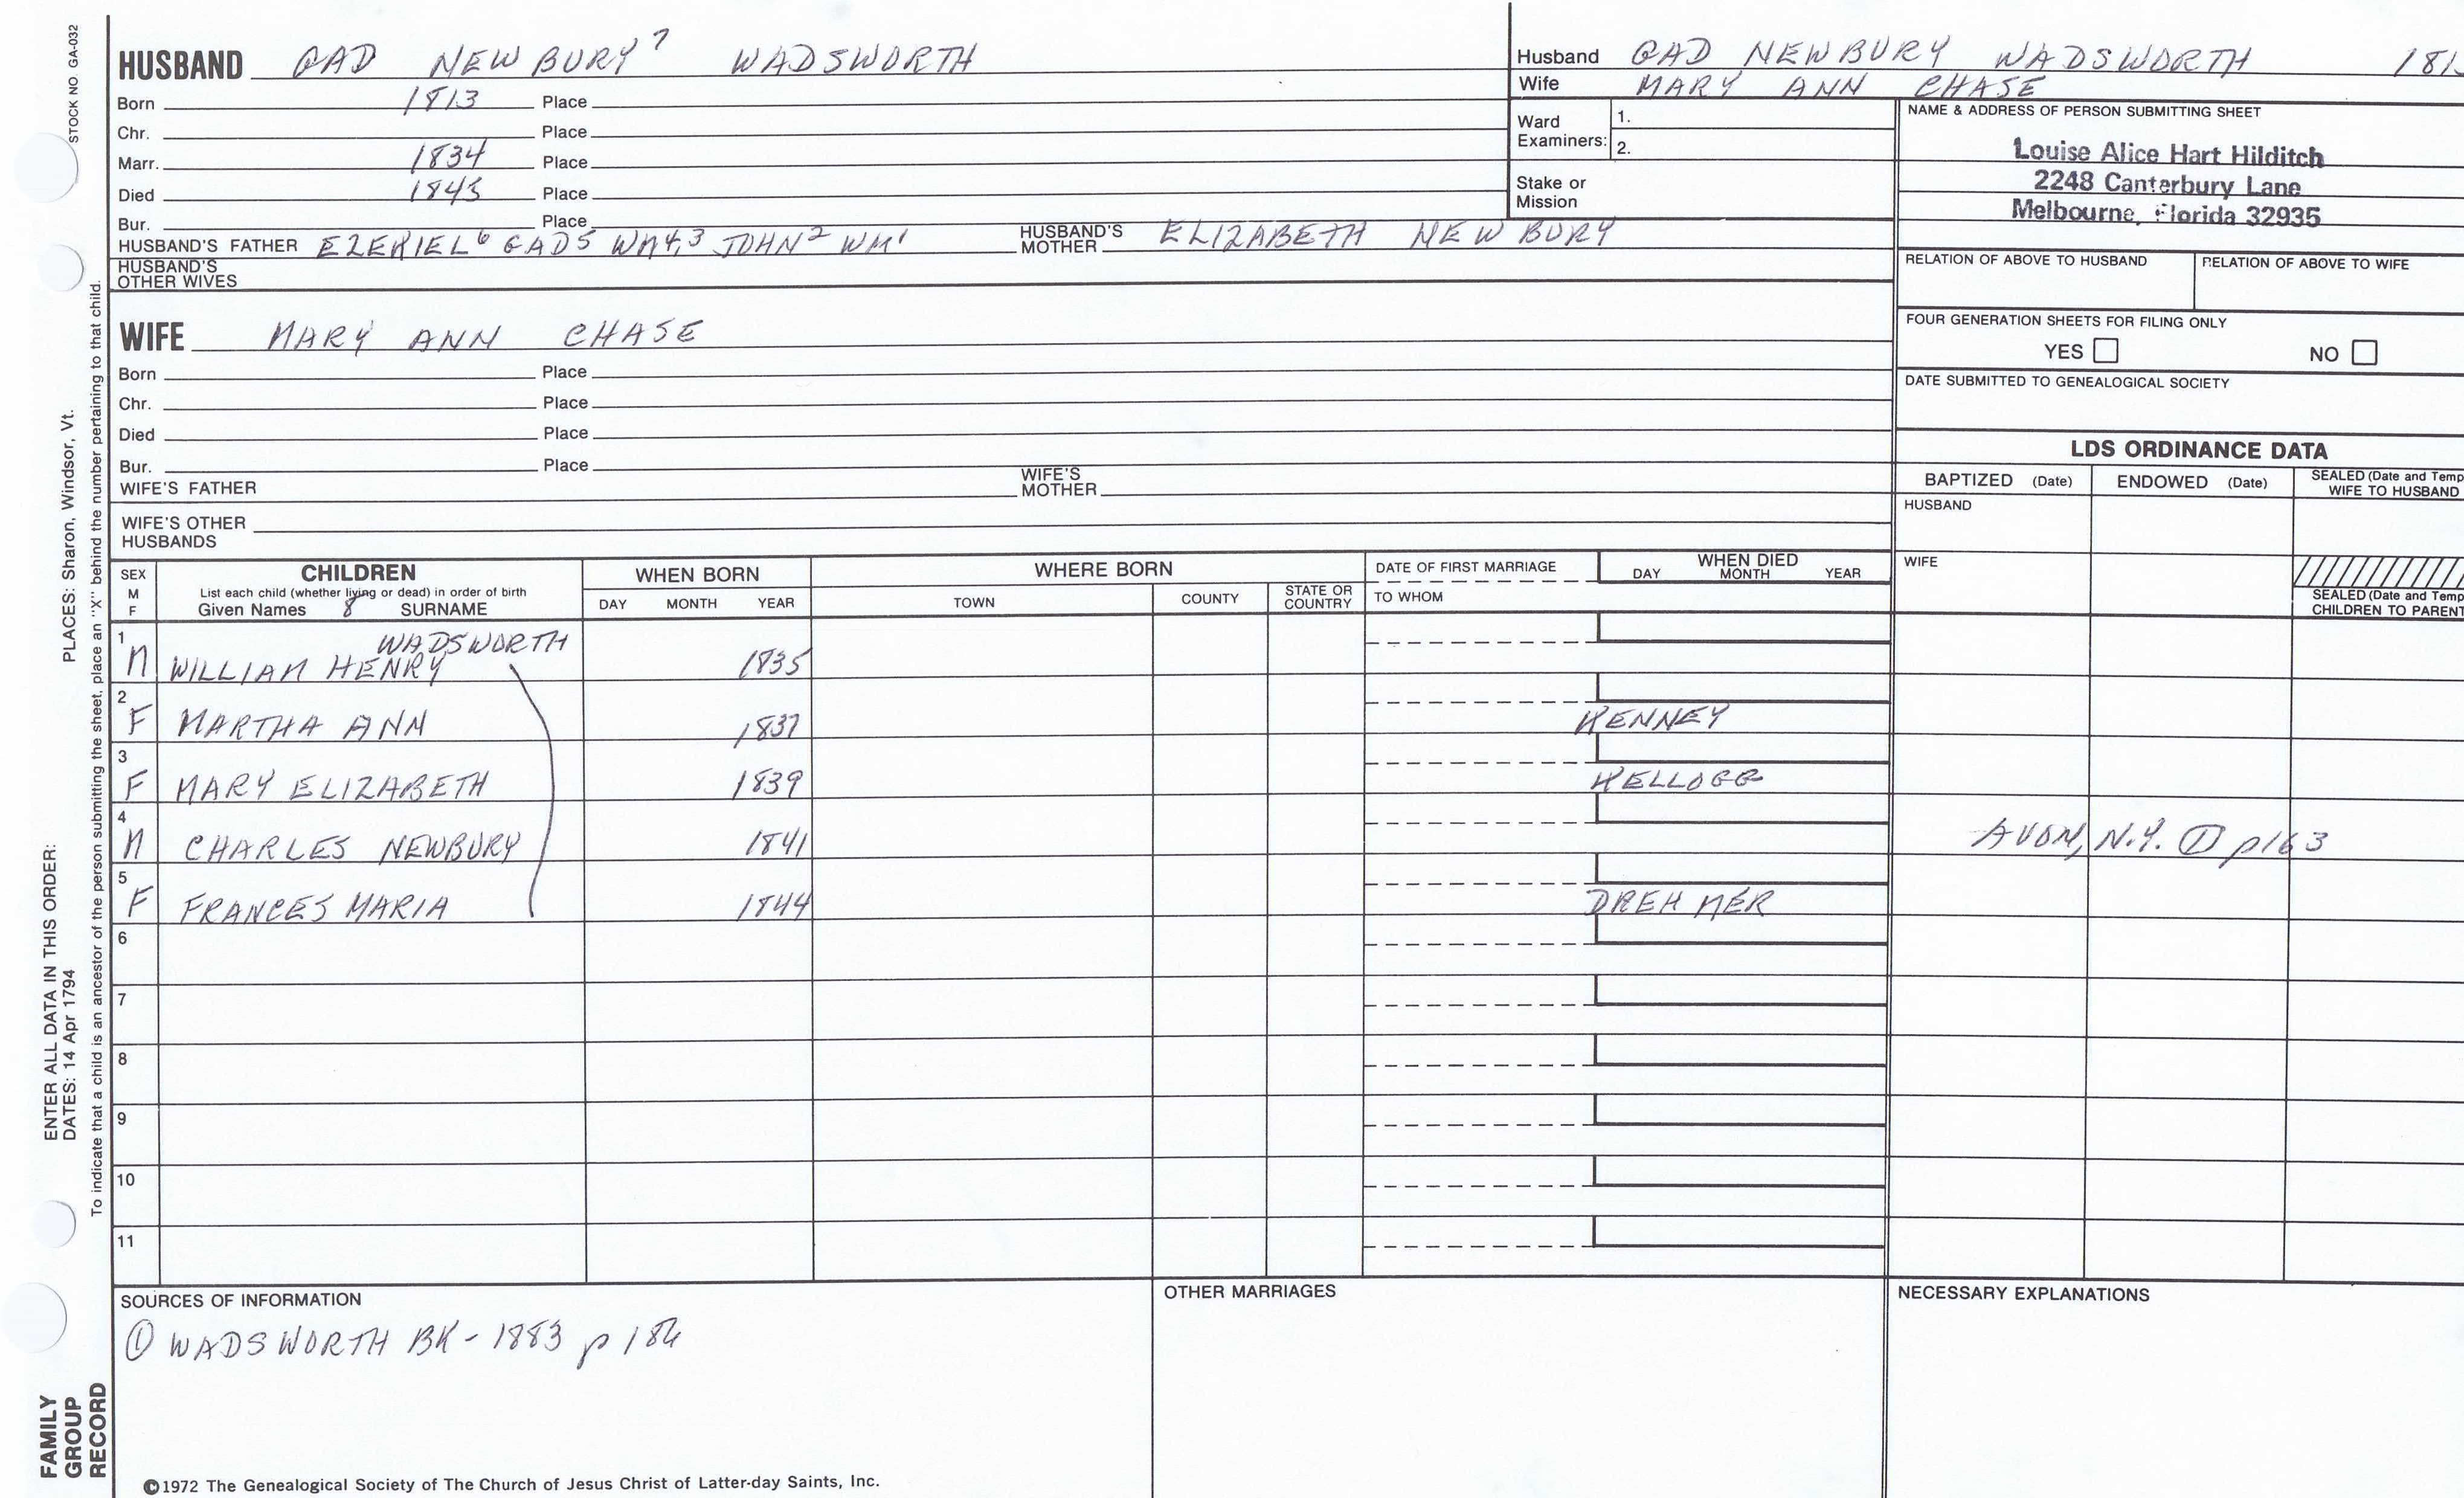 STOCK NO GA-032
HUSBAND GAD NEWBURY⁷ WADSWORTH
Born 1813 Place
Chr. Place
Marr. 1834 Place
Died 1845 Place
Bur. Place
HUSBAND'S FATHER EZEKIEL⁶ GAD⁵ WM⁴,³ JOHN² WM¹ HUSBAND'S MOTHER ELIZABETH NEWBURY
HUSBAND'S OTHER WIVES
Husband GAD NEWBURY WADSWORTH
Wife MARY ANN CHASE
Ward Examiners: 1.
2.
Stake or Mission
NAME & ADDRESS OF PERSON SUBMITTING SHEET
Louise Alice Hart Hilditch
2248 Canterbury Lane
Melbourne, Florida 32935
RELATION OF ABOVE TO HUSBAND RELATION OF ABOVE TO WIFE
FOUR GENERATION SHEETS FOR FILING ONLY
YES NO
DATE SUBMITTED TO GENEALOGICAL SOCIETY
WIFE MARY ANN CHASE
Born Place
Chr. Place
Died Place
Bur. Place
WIFE'S FATHER WIFE'S MOTHER
WIFE'S OTHER HUSBANDS
LDS ORDINANCE DATA
BAPTIZED (Date) ENDOWED (Date) SEALED (Date and Temp
WIFE TO HUSBAND
HUSBAND
WIFE
SEALED (Date and Temp
CHILDREN TO PARENT
SEX M F
CHILDREN
List each child (whether living or dead) in order of birth
Given Names 8 SURNAME
WHEN BORN
DAY MONTH YEAR
WHERE BORN
TOWN COUNTY STATE OR COUNTRY
DATE OF FIRST MARRIAGE
TO WHOM
WHEN DIED
DAY MONTH YEAR
WADSWORTH
1 M WILLIAM HENRY 1835
2 F MARTHA ANN 1837 KENNEY
3 F MARY ELIZABETH 1839 KELLOGG
4 M CHARLES NEWBURY 1841 AVON, N.Y. ① p163
5 F FRANCES MARIA 1844 DREHMER
6
7
8
9
10
11
SOURCES OF INFORMATION
① WADSWORTH BK - 1883 p 186
OTHER MARRIAGES
NECESSARY EXPLANATIONS
©1972 The Genealogical Society of The Church of Jesus Christ of Latter-day Saints, Inc.
FAMILY GROUP RECORD
ENTER ALL DATA IN THIS ORDER:
DATES: 14 Apr 1794 PLACES: Sharon, Windsor, Vt.
To indicate that a child is an ancestor of the person submitting the sheet, place an "X" behind the number pertaining to that child.